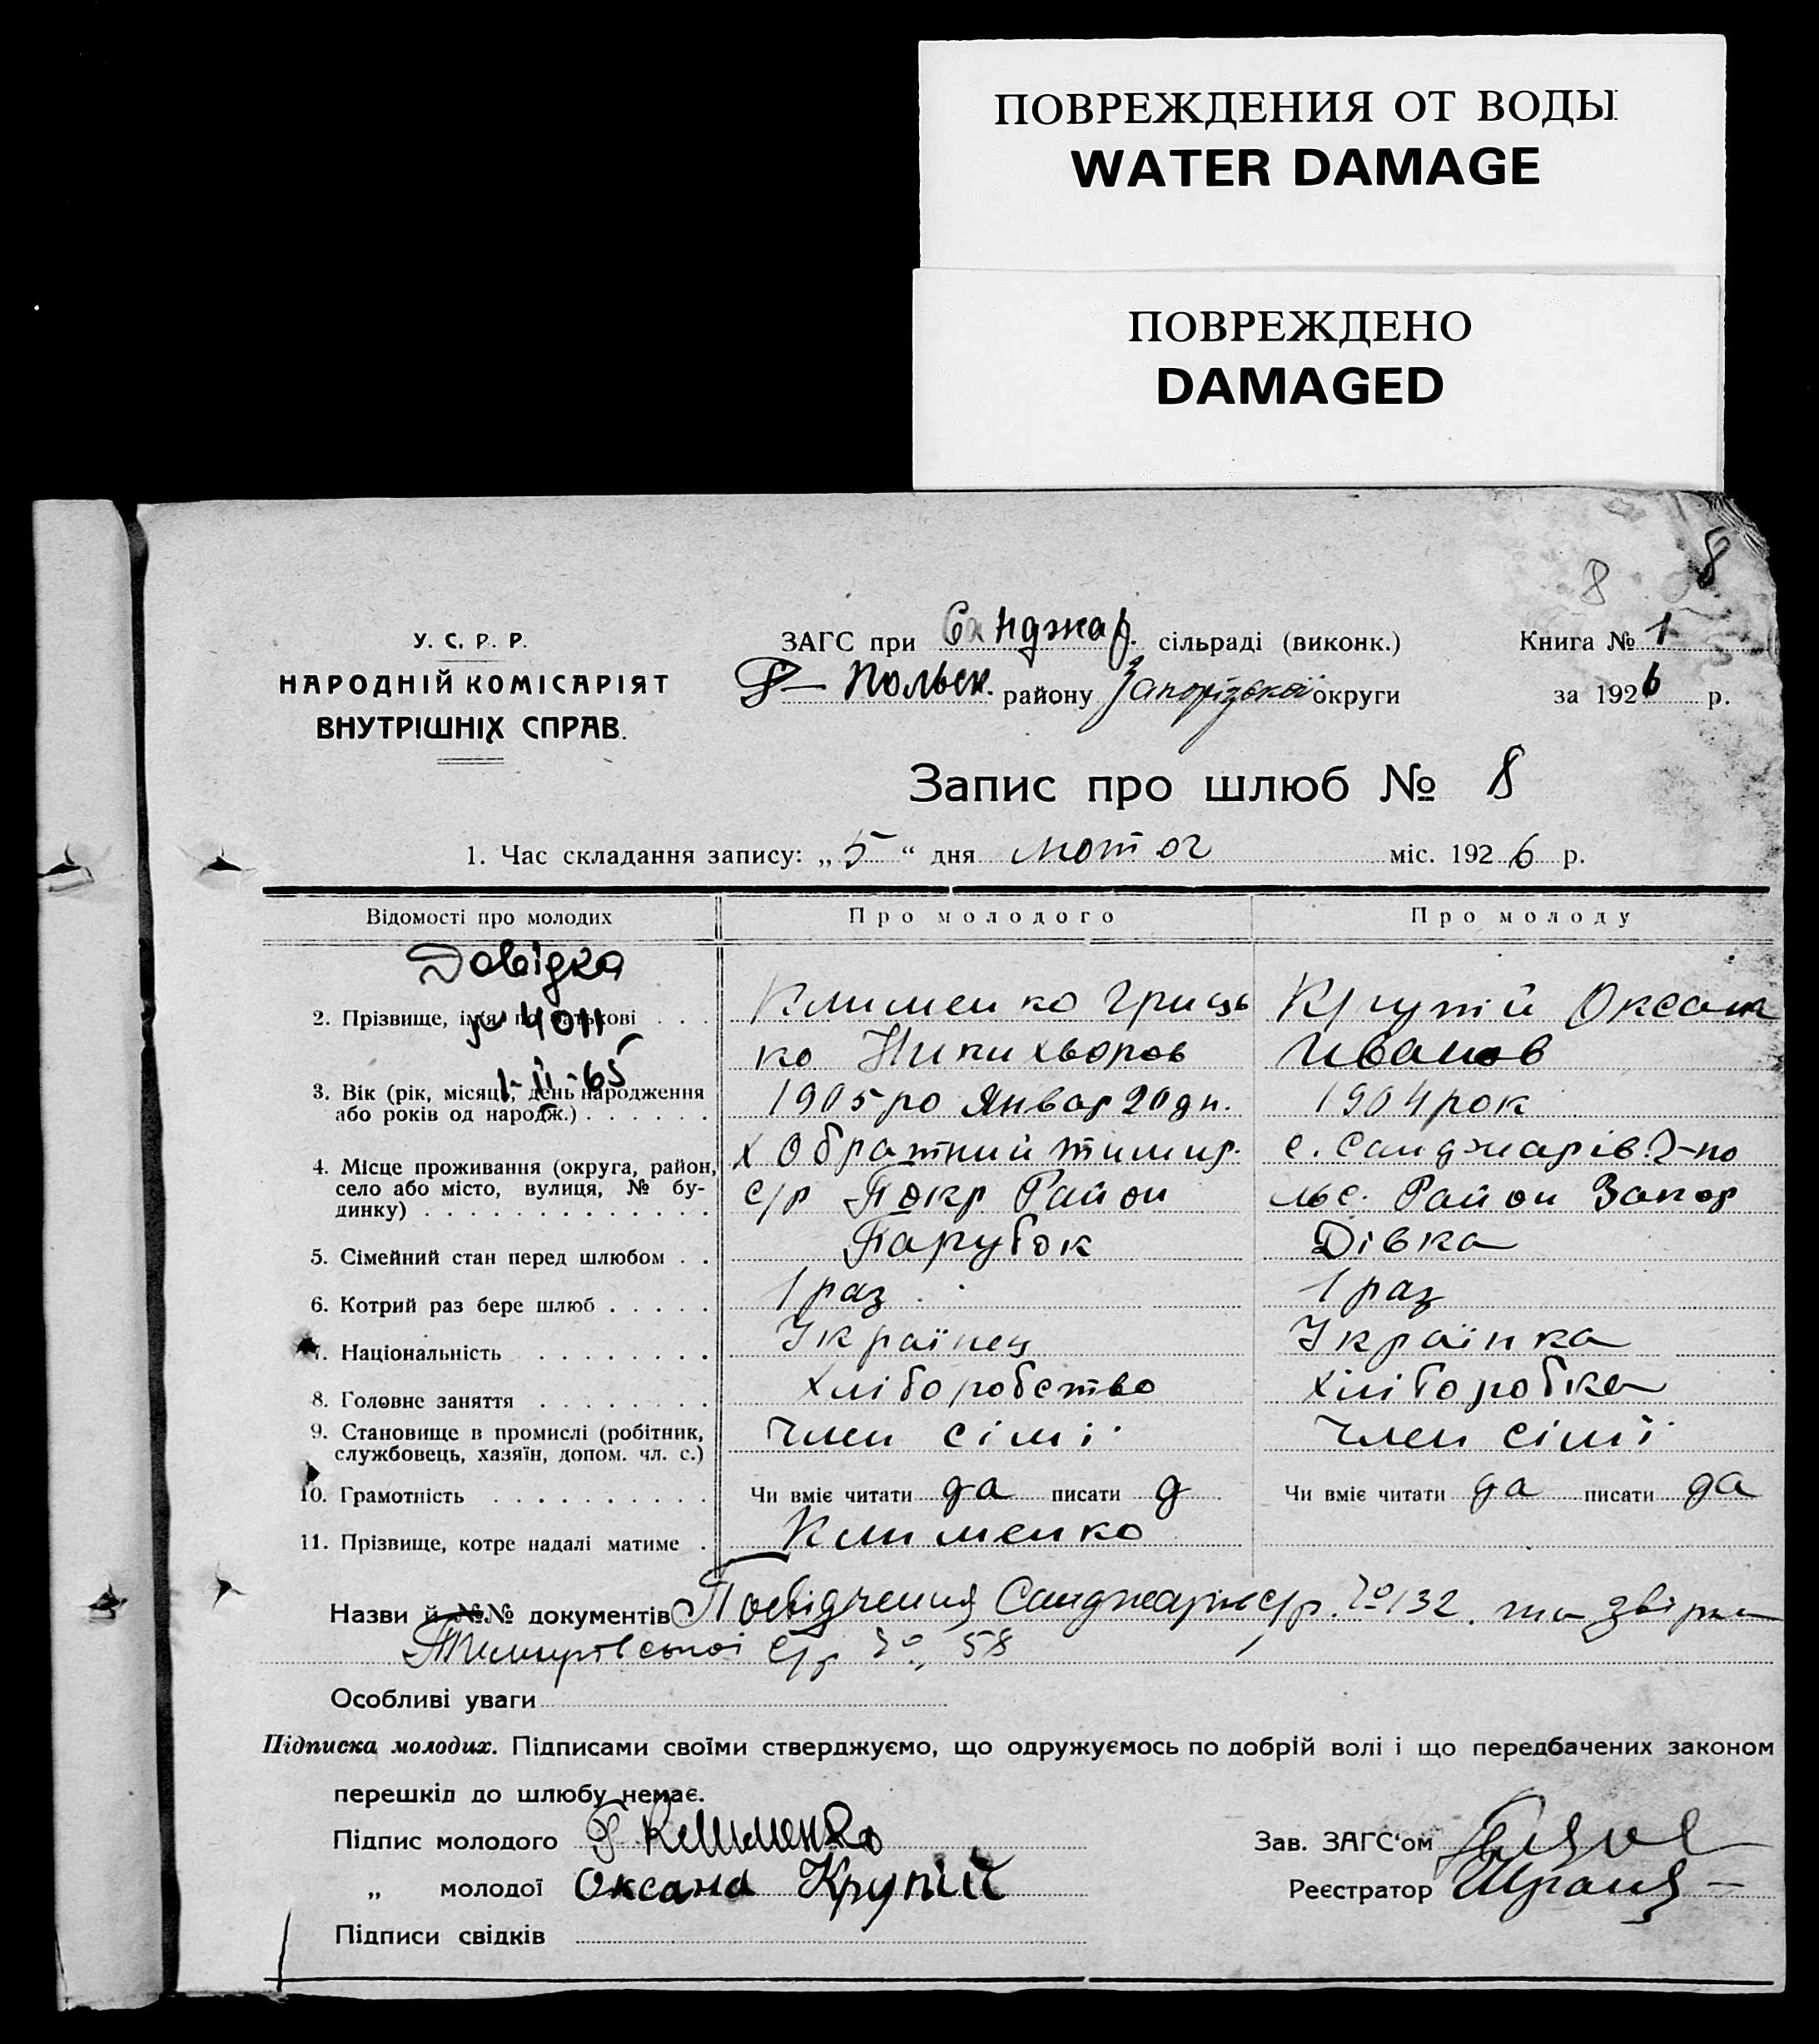 ПОВРЕЖДЕНИЯ ОТ ВОДЫ
WATER DAMAGE
ПОВРЕЖДЕНО
DAMAGED
8 8
У. С. Р. Р.
НАРОДНІЙ КОМІСАРІЯТ
ВНУТРІШНІХ СПРАВ.
ЗАГС при Санджар. сільраді (виконк.)
Польск. району Запорізької округи
Книга № 1
за 1926 р.
Запис про шлюб № 8
1. Час складання запису: „5“ дня лютог міс. 1926 р.
Відомості про молодих Про молодого Про молоду
Довідка
№ 4011
1-II-65
2. Прізвище, ім'я, по батькові . . . Клименко Гриць Крупій Оксан
ко Никихворов Иванов
3. Вік (рік, місяць, день народження 1905 ро Январ 20 дн. 1904 рок
або років од народж.) . . . . . .
4. Місце проживання (округа, район, х Обратний тимир. с. Санджарів. 2-по
село або місто, вулиця, № бу- с/р Покр Район льс. Район Запор
динку) . . . . . . . . . . . . .
5. Сімейний стан перед шлюбом . . Парубок Дівка
6. Котрий раз бере шлюб . . . . . 1 раз 1 раз
7. Національність . . . . . . . . Українец Українка
8. Головне заняття . . . . . . . . Хліборобство Хліборобка
9. Становище в промислі (робітник, Член сімї Член сімї
службовець, хазяїн, допом. чл. с.)
10. Грамотність . . . . . . . . . . Чи вміє читати да писати д Чи вміє читати да писати да
11. Прізвище, котре надалі матиме . Клименко
Назви й №№ документів Посвідчення Санджарів с/р. № 132. та звірка
Тимирівської с/р № 58
Особливі уваги
Підписка молодих. Підписами своїми стверджуємо, що одружуємось по добрій волі і що передбачених законом
перешкід до шлюбу немає.
Підпис молодого Г Клименко
„ молодої Оксана Крупій
Підписи свідків
Зав. ЗАГС'ом
Реєстратор